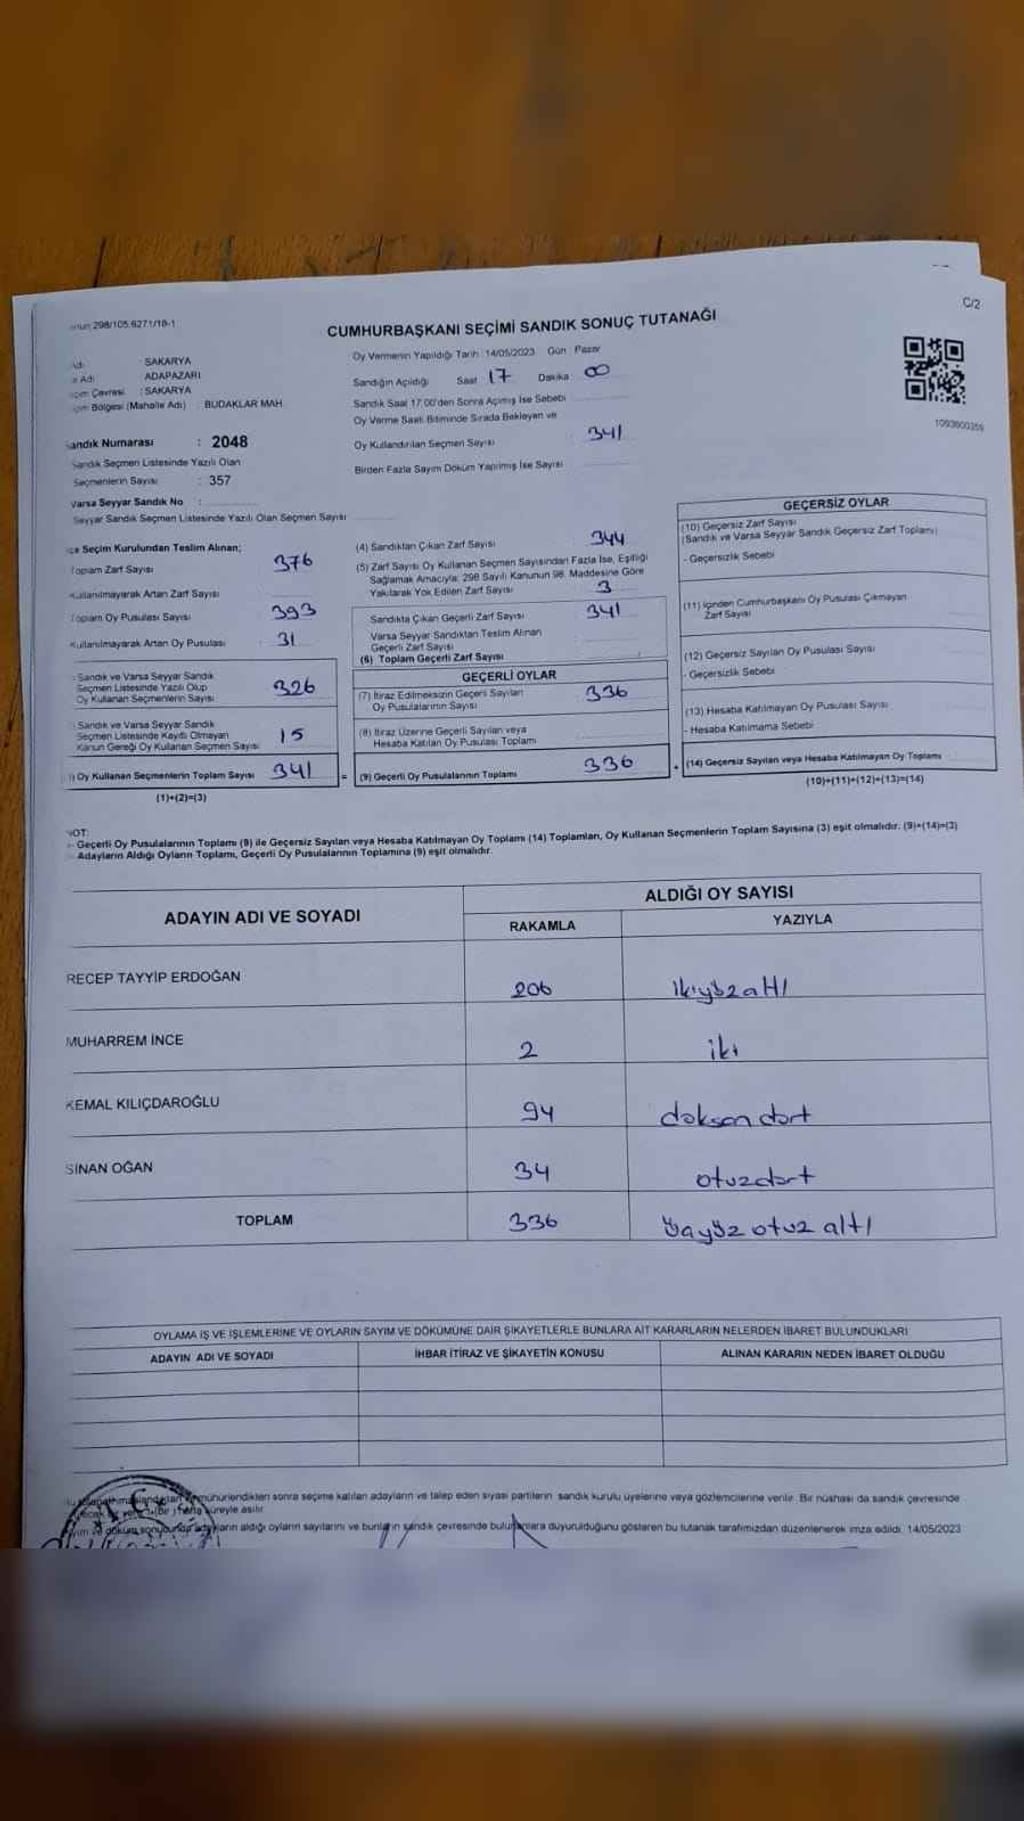 298/105.6271/18-1
C/2
CUMHURBAŞKANI SEÇİMİ SANDIK SONUÇ TUTANAĞI
SAKARYA
Adı : ADAPAZARI
Çevresi : SAKARYA
Bölgesi (Mahalle Adı) : BUDAKLAR MAH.
Sandık Numarası : 2048
Sandık Seçmen Listesinde Yazılı Olan
Seçmenlerin Sayısı : 357
Varsa Seyyar Sandık No :
Seyyar Sandık Seçmen Listesinde Yazılı Olan Seçmen Sayısı
Oy Vermenin Yapıldığı Tarih : 14/05/2023 Gün : Pazar
Sandığın Açıldığı Saat 17 Dakika : 00
Sandık Saat 17:00'den Sonra Açılmış İse Sebebi
Oy Verme Saati Bitiminde Sırada Bekleyen ve
Oy Kullandırılan Seçmen Sayısı : 341
Birden Fazla Sayım Döküm Yapılmış İse Sayısı
1093600359
Seçim Kurulundan Teslim Alınan;
Toplam Zarf Sayısı 376
Kullanılmayarak Artan Zarf Sayısı
Toplam Oy Pusulası Sayısı 393
Kullanılmayarak Artan Oy Pusulası 31
Sandık ve Varsa Seyyar Sandık
Seçmen Listesinde Yazılı Olup
Oy Kullanan Seçmenlerin Sayısı 326
Sandık ve Varsa Seyyar Sandık
Seçmen Listesinde Kaydı Olmayan
Kanun Gereği Oy Kullanan Seçmen Sayısı 15
Oy Kullanan Seçmenlerin Toplam Sayısı 341 =
(1)+(2)=(3)
(4) Sandıktan Çıkan Zarf Sayısı 344
(5) Zarf Sayısı Oy Kullanan Seçmen Sayısından Fazla İse, Eşitliği
Sağlamak Amacıyla; 298 Sayılı Kanunun 98. Maddesine Göre
Yakılarak Yok Edilen Zarf Sayısı 3
Sandıkta Çıkan Geçerli Zarf Sayısı 341
Varsa Seyyar Sandıktan Teslim Alınan
Geçerli Zarf Sayısı
(6) Toplam Geçerli Zarf Sayısı
GEÇERLİ OYLAR
(7) İtiraz Edilmeksizin Geçerli Sayılan
Oy Pusulalarının Sayısı 336
(8) İtiraz Üzerine Geçerli Sayılan veya
Hesaba Katılan Oy Pusulası Toplamı
(9) Geçerli Oy Pusulalarının Toplamı 336 +
GEÇERSİZ OYLAR
(10) Geçersiz Zarf Sayısı
(Sandık ve Varsa Seyyar Sandık Geçersiz Zarf Toplamı)
- Geçersizlik Sebebi
(11) İçinden Cumhurbaşkanı Oy Pusulası Çıkmayan
Zarf Sayısı
(12) Geçersiz Sayılan Oy Pusulası Sayısı
- Geçersizlik Sebebi
(13) Hesaba Katılmayan Oy Pusulası Sayısı
- Hesaba Katılmama Sebebi
(14) Geçersiz Sayılan veya Hesaba Katılmayan Oy Toplamı
(10)+(11)+(12)+(13)=(14)
NOT:
- Geçerli Oy Pusulalarının Toplamı (9) ile Geçersiz Sayılan veya Hesaba Katılmayan Oy Toplamı (14) Toplamları, Oy Kullanan Seçmenlerin Toplam Sayısına (3) eşit olmalıdır. (9)+(14)=(3)
- Adayların Aldığı Oyların Toplamı, Geçerli Oy Pusulalarının Toplamına (9) eşit olmalıdır.
ADAYIN ADI VE SOYADI
ALDIĞI OY SAYISI
RAKAMLA YAZIYLA
RECEP TAYYİP ERDOĞAN 206 ikiyüzaltı
MUHARREM İNCE 2 iki
KEMAL KILIÇDAROĞLU 94 doksan dört
SİNAN OĞAN 34 otuzdört
TOPLAM 336 üçyüz otuz altı
OYLAMA İŞ VE İŞLEMLERİNE VE OYLARIN SAYIM VE DÖKÜMÜNE DAİR ŞİKAYETLERLE BUNLARA AİT KARARLARIN NELERDEN İBARET BULUNDUKLARI
ADAYIN ADI VE SOYADI İHBAR İTİRAZ VE ŞİKAYETİN KONUSU ALINAN KARARIN NEDEN İBARET OLDUĞU
mühürlendikten sonra seçime katılan adayların ve talep eden siyasi partilerin sandık kurulu üyelerine veya gözlemcilerine verilir. Bir nüshası da sandık çevresinde
(bir) hafta süreyle asılır.
aldığı oyların sayılarını ve bunların sandık çevresinde bulunanlara duyurulduğunu gösteren bu tutanak tarafımızdan düzenlenerek imza edildi. 14/05/2023